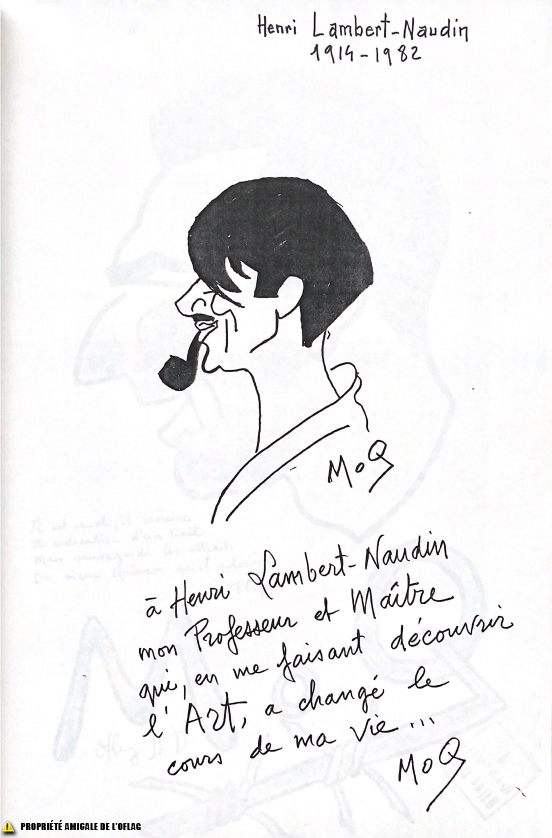 Henri Lambert-Naudin
1914-1982
MoQ
à Henri Lambert-Naudin
mon Professeur et Maître
qui, en me faisant découvrir
l'Art, a changé le
cours de ma vie...
MoQ
PROPRIÉTÉ AMIGALE DE L'OFLAG